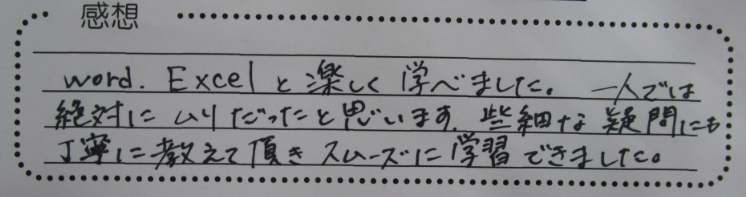 感想
word. Excelと楽しく学べました。 一人では
絶対にムリだったと思います。些細な疑問にも
丁寧に教えて頂きスムーズに学習できました。